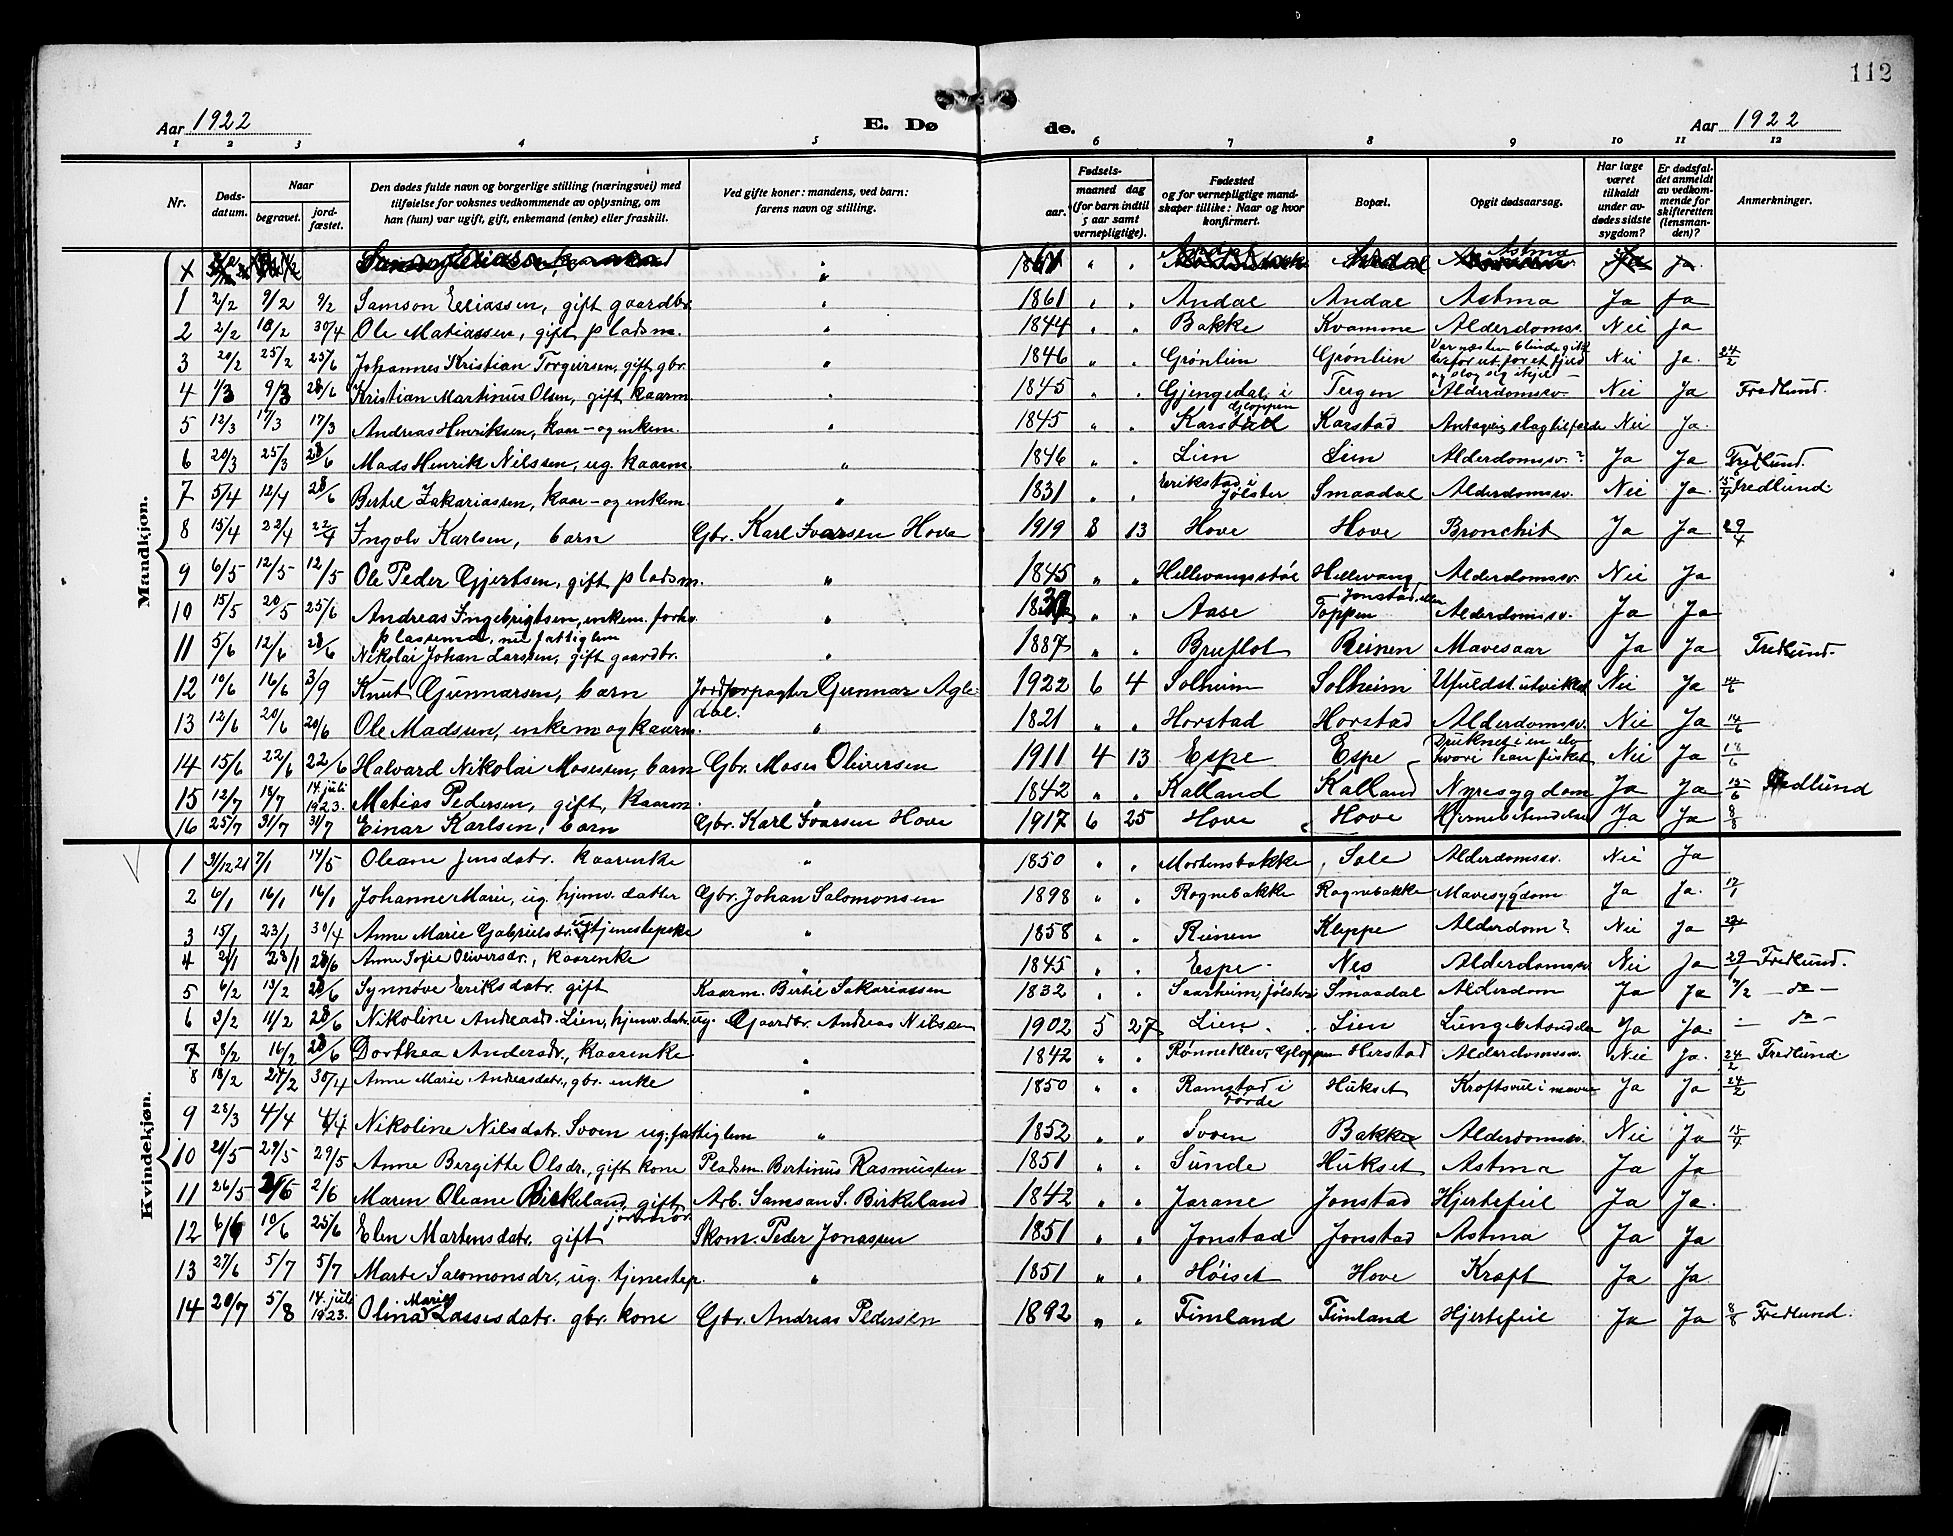 112
Aar 1922 E. Dø de. Aar 1922
1 2 3 4 5 6 7 8 9 10 11 12
Nr. Døds-datum. Naar begravet. jord-fæstet. Den dødes fulde navn og borgerlige stilling (næringsvei) med tilføielse for voksnes vedkommende av oplysning, om han (hun) var ugift, gift, enkemand (enke) eller fraskilt. Ved gifte koner: mandens, ved barn: farens navn og stilling. Fødsels- aar. maaned dag (for barn indtil 5 aar samt vernepligtige). Fødested og for vernepligtige mand-skaper tillike: Naar og hvor konfirmert. Bopæl. Opgit dødsaarsag. Har læge været tilkaldt under av-dødes sidste sygdom? Er dødsfal-det anmeldt av vedkom-mende for skifteretten (lensman-den)? Anmerkninger.
Mandkjøn.
X " 1861 " " Astma Ja Ja
1 2/2 9/2 9/2 Samson Eliassen, gift gaardbr. " 1861 " " Andal Andal Astma Ja Ja
2 2/2 18/2 30/4 Ole Matiassen, gift pladsm. " 1844 " " Bakke Kvamme Alderdomssv. Nei Ja
3 20/2 25/2 25/6 Johannes Kristian Torgersen, gift gbr. " 1846 " " Grønlien Grønlien Var næsten blind, gik utfor et fjeld og slog sig ihjel Nei Ja. 24/2
4 1/3 9/3 28/6 Kristian Martinus Olsen, gift kaarm " 1845 " " Gjengedal i Gloppen Tergen Alderdomssv. Nei Ja Fredlund.
5 12/3 17/3 17/3 Andreas Henriksen, kaar- og enkem. " 1845 " " Karstad Karstad Antagelig slagtilfælde Nei Ja.
6 20/3 25/3 28/6 Mads Henrik Nilssen, ug. kaarm. " 1846 " " Lien Lien Alderdomssv.? Ja Ja Fredlund.
7 5/4 12/4 28/6 Bertel Zakariassen, kaar- og enkem. " 1831 " " Erikstad i Jølster Smaadal Alderdomssv. Nei Ja. 15/4 Fredlund
8 15/4 22/4 22/4 Ingolv Karlsen, barn Gbr. Karl Ivarsen Hove 1919 8 13 Hove Hove Bronchit Ja Ja 29/4
9 6/5 12/5 12/5 Ole Peder Gjertsen, gift pladsm. " 1845 " " Hellevangsstøl Hellevang Alderdomssv. Nei Ja
10 15/5 20/5 25/6 Andreas Ingebrigtsen, enkem. forhv. plassmd, nu fattiglem " " " Aase Jonstad, eller Toppen Alderdomssv. Ja Ja
11 5/6 12/6 28/6 Nikolai Johan Larsen, gift gaardbr. " 1887 " " Bruflot Reinen Mavesaar Ja Ja Fredlund.
12 10/6 16/6 3/9 Knut Gunnarsen, barn Jordforpagter Gunnar Agledal. 1922 6 4 Solheim Solheim Ufuldst. utviklet Nei Ja 14/6
13 12/6 20/6 20/6 Ole Madsen, enkem. og kaarm. " 1821 " " Horstad Horstad Alderdomssv. Nei Ja 14/6
14 15/6 22/6 22/6 Halvard Nikolai Mosessen, barn Gbr. Moses Oliversen 1911 4 13 Espe Espe Druknet i en elv hvori han fisket Nei Ja 18/6
15 12/7 18/7 14. juli 1923. Matias Pedersen, gift, kaarm. " 1842 " " Kalland Kalland Nyresygdom Ja Ja 15/6 Fredlund
16 25/7 31/7 31/7 Einar Karlsen, barn Gbr. Karl Ivarsen Hove 1917 6 25 Hove Hove Hjernebetændelse Ja Ja 8/8
Kvindekjøn.
1 31/12 21 7/1 14/5 Oleane Jensdatr. kaarenke " 1850 " " Mortensbakke Sole Alderdomssv. Nei Ja
2 6/1 16/1 16/1 Johanne Marie, ug. hjemv. datter Gbr. Johan Salomonsen 1898 " " Rognebakke Rognebakke Mavesygdom Ja Ja. 17/1
3 15/1 23/1 30/4 Anne Marie Gabrielsdr. ug. tjenestepike " 1858 " " Reinen Kleppe Alderdom? Nei Ja
4 21/1 28/1 28/6 Anne Sofie Oliversdr., kaarenke " 1845 " " Espe Nes Alderdomssv Nei Ja Fredlund.
5 6/2 13/2 28/6 Synnøve Eriksdatr. gift Kaarm. Bertel Sakariassen 1832 " " Saarheim, Jølster Smaadal Alderdom Ja Ja 7/2 - do -
6 3/2 11/2 28/6 Nikoline Andreasdr. Lien, hjemv. datr. ug. Gaardbr. Andreas Nilssen 1902 5 27 Lien Lien Lungebetændelse Ja Ja. - do -
7 8/2 16/2 28/6 Dorthea Andersdr., kaarenke " 1842 " " Rønneklev, Gloppen Herstad Alderdomssv. Nei Ja. 24/2 Fredlund
8 18/2 27/2 30/4 Anne Marie Andreasdatr., gbr. enke " 1850 " " Ramstad i Førde Hukset Kræftsvul i maven Ja Ja 24/2
9 28/3 4/4 4/4 Nikoline Nilsdatr. Svoen ug. fattiglem " 1852 " " Svoen Bakke Alderdomssv. Nei Ja 15/4
10 21/5 29/5 29/5 Anne Bergitte Olsdr., gift kone Pladsm. Bertinus Rasmussen 1851 " " Sunde Hukset Astma Ja Ja
11 26/5 2/6 2/6 Maren Oleane Birkeland, gift, jordmor. Arb. Samson S. Birkeland 1842 " " Jarane Jonstad Hjertefeil Ja Ja.
12 6/6 10/6 25/6 Elen Martensdatr. gift Skom. Peder Jonassen 1851 " " Jonstad Jonstad Astma Ja Ja
13 27/6 5/7 5/7 Marte Salomonsdr., ug. tjenestep. " 1851 " " Høiset Hove Kræft Ja Ja
14 20/7 5/8 14. juli 1923. Olina Marie Lassesdatr. gbr. kone Gbr. Andreas Pedersen 1892 " " Fimland Fimland Hjertefeil Ja Ja 8/8 Fredlund.